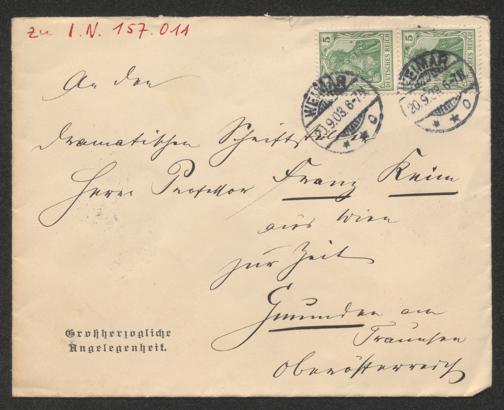 zu I.N. 157.011
5 DEUTSCHES REICH 5
WEIMAR
20.9.03. 6-7N.
WEIMAR
20.9.03. 6-7N.
An den
dramatischen Schriftsteller
Herrn Professor Franz Keim
aus Wien
zur Zeit
Gmunden am
Traunsee
Oberösterreich
Großherzogliche
Angelegenheit.